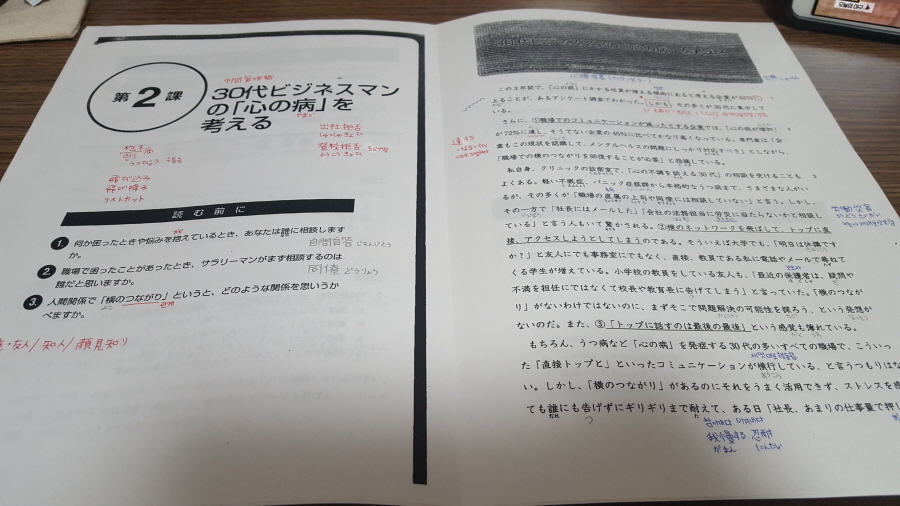 中間管理職
第2課
30代ビジネスマン
の「心の病」を
考える
やまい
出社拒否
登校拒否
リストカット
読む前に
1. 何か困ったときや悩みを抱えているとき、あなたは誰に相談します
か。
自問自答
2. 職場で困ったことがあったとき、サラリーマンがまず相談するのは
誰だと思いますか。
同僚 どうりょう
3. 人間関係で「横のつながり」というと、どのような関係を思い浮か
べますか。
友人/知人/顔見知り
この3年間で、「心の病」にかかる社員が増える傾向にあると考える企業が62%に
よることが、あるアンケート調査でわかった。しかも、その多くが30代に集中して
いる。
さらに、①職場でのコミュニケーションが減ったとする企業では、「心の病が増加」
が72%に達し、そうでない企業の46%に比べてかなり高くなっている。専門家は「企
業もこの現状を認識して、メンタルヘルスの問題にしっかり対応すべき」としながら、
「職場での横のつながりを回復することが必要」と指摘している。
私自身、クリニックの診察室で、「心の不調を訴える30代」の相談を受けることも
よくある。軽い不眠症、パニック症候群から本格的なうつ病まで、さまざまな人がい
るが、その多くが「職場の直属の上司や同僚には相談していない」と言う。しかし、
その一方で「社長にはメールした」「会社の法務担当に労災に当たらないかと相談し
ている」と言う人もいて驚かされる。②横のネットワークを飛ばして、トップに直
接、アクセスしようとしてしまうのである。そういえば大学でも、「明日は休講です
か?」と友人にでも事務室にでもなく、直接、教員である私に電話やメールで尋ねて
くる学生が増えている。小学校の教員をしている友人も、「最近の保護者は、疑問や
不満を担任にではなくて校長や教育長に告げてしまう」と言っていた。「横のつなが
り」がないわけではないのに、まずそこで問題解決の可能性を探ろう、という発想が
ないのだ。また、③「トップに話すのは最後の最後」という感覚も薄れている。
もちろん、うつ病など「心の病」を発症する30代の多いすべての職場で、こういっ
た「直接トップと」といったコミュニケーションが横行している、と言うつもりはな
い。しかし、「横のつながり」があるのにそれをうまく活用できず、ストレスを感
ても誰にも告げずにギリギリまで耐えて、ある日「社長、あまりの仕事量で押し
참다 견디다
我慢する 忍耐
がまん にんたい